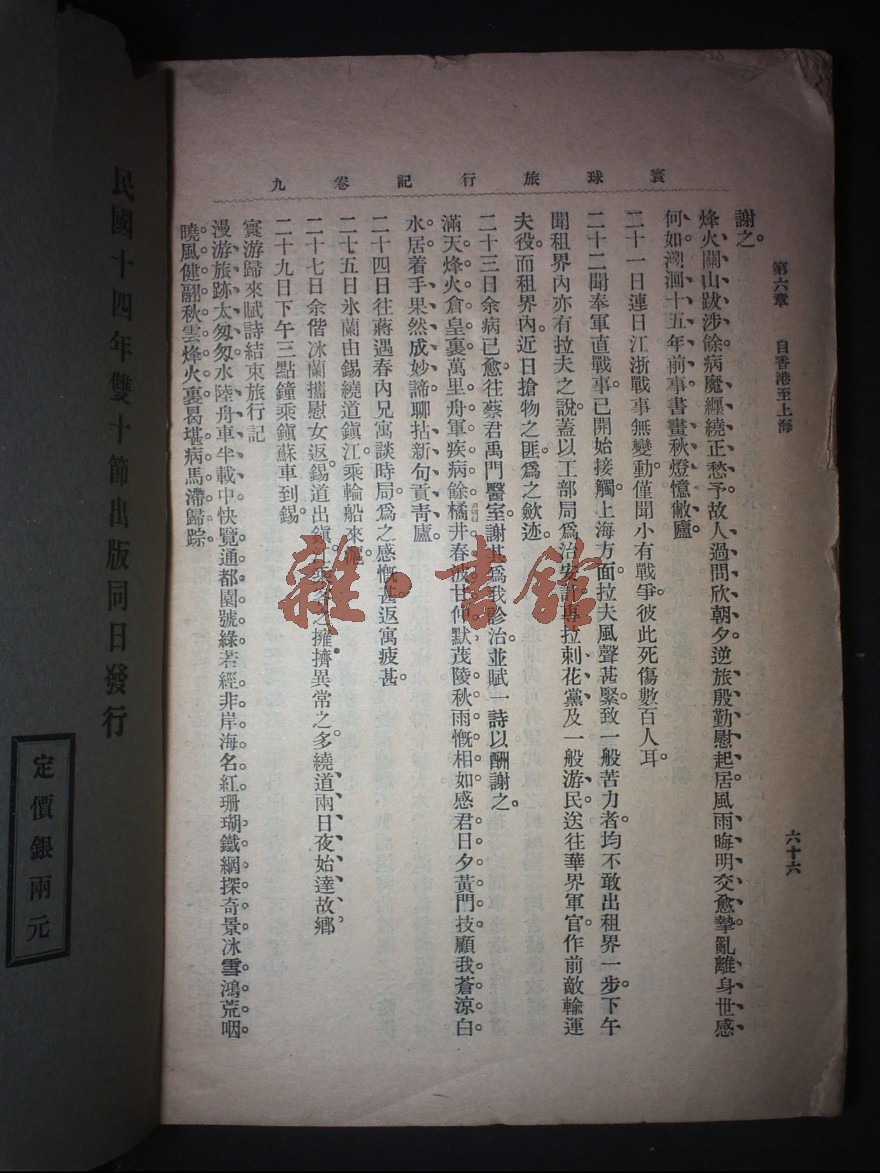 寰球旅行記卷九
第六章　自香港至上海
六十六
謝之。
烽火關山跋涉餘病魔纒繞正愁予故人過問欣朝夕逆旅殷勤慰起居風雨晦明交愈摯亂離身世感
何如溯洄十五年前事書畫秋燈憶敝廬。
二十一日連日江浙戰事無變動僅聞小有戰爭彼此死傷數百人耳
二十二聞奉軍直戰事已開始接觸上海方面拉夫風聲甚緊致一般苦力者均不敢出租界一步下午
聞租界內亦有拉夫之說。蓋以工部局爲治安計專拉刺花黨及一般游民送往華界軍官作前敵輸運
夫役。而租界內近日搶物之匪爲之歛迹。
二十三日余病已愈往蔡君禹門醫室。謝其爲我診治並賦一詩以酬謝之。
滿天烽火倉皇裏萬里舟車疾病餘橘井春波甘仰默茂陵秋雨慨相如感君日夕黃門技顧我蒼涼白
水居着手果然成妙諦聊拈新句貢靑廬
二十四日往蔣遇春內兄寓談時局爲之感慨甚返寓疲甚
二十五日氷蘭由錫繞道鎭江乘輪船來滬。
二十七日余偕冰蘭攜慰女返錫道出鎭江乘客之擁擠異常之多繞道兩日夜始達故鄉
二十九日下午三點鐘乘鎭蘇車到錫。
寰游歸來賦詩結束旅行記
漫游旅跡太匆匆水陸舟車半載中快覽通都園號綠若經非岸海名紅珊瑚鐵網探奇景冰雪鴻荒咽
曉風健翮秋雲烽火裏曷堪病馬滯歸踪
民國十四年雙十節出版同日發行
定價銀兩元
雜·書館